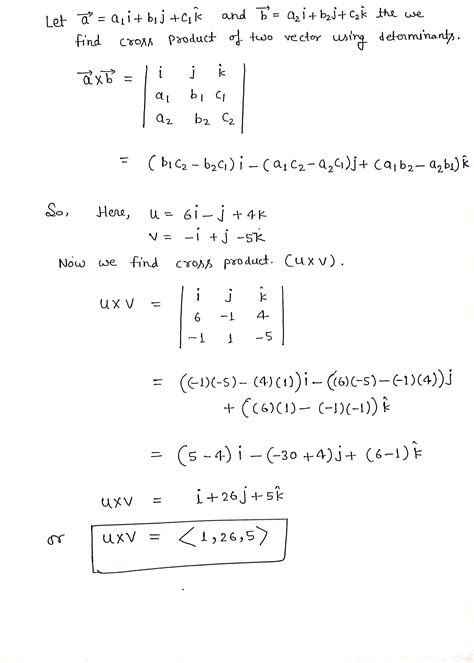 Let a⃗ = a₁i + b₁j + c₁k̂ and b⃗ = a₂i + b₂j + c₂k̂ the we
find cross product of two vector using determinants.
a⃗xb⃗ = | i j k̂ |
| a₁ b₁ c₁ |
| a₂ b₂ c₂ |
= (b₁c₂ - b₂c₁) i - (a₁c₂ - a₂c₁)j + (a₁b₂ - a₂b₁) k̂
So, Here, u = 6i - j + 4k
v = -i + j - 5k
Now we find cross product. (uxv).
uxv = | i j k̂ |
| 6 -1 4 |
| -1 1 -5 |
= ((-1)(-5) - (4)(1))i - ((6)(-5) - (-1)(4))j
+ ((6)(1) - (-1)(-1)) k̂
= (5-4) i - (-30+4) j + (6-1) k̂
uxv = i + 26j + 5k̂
or uxv = ⟨1, 26, 5⟩